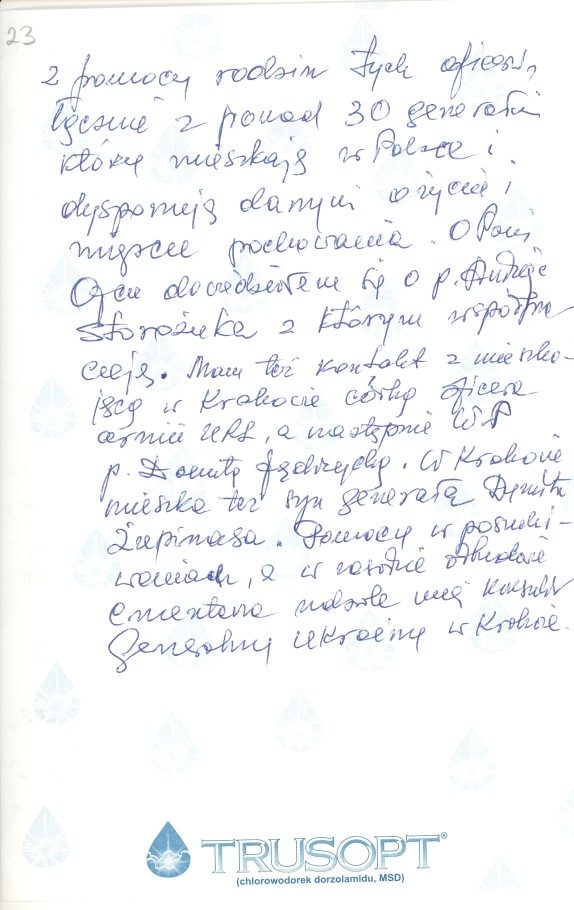 23
z pomocy rodzin tych oficerów,
łącznie z ponad 30 generałami
które mieszkają w Polsce i
dysponują danymi o życiu i
miejscu pochowania. O Pani
Ojcu dowiedziałem się o p. Andrzeja
Storożuka z którym współpra-
cuję. Mam też kontakt z mieszka-
jącą w Krakowie córką oficera
armii URL, a następnie WP
p. Danutą. W Krakowie
mieszka też syn generała Dymitra
Żupinasa. Pomocy w poszuki-
waniach, a w odbudowie
cmentarza udziela mi Konsulat
Generalny Ukrainy w Krakowie.
TRUSOPT®
(chlorowodorek dorzolamidu, MSD)